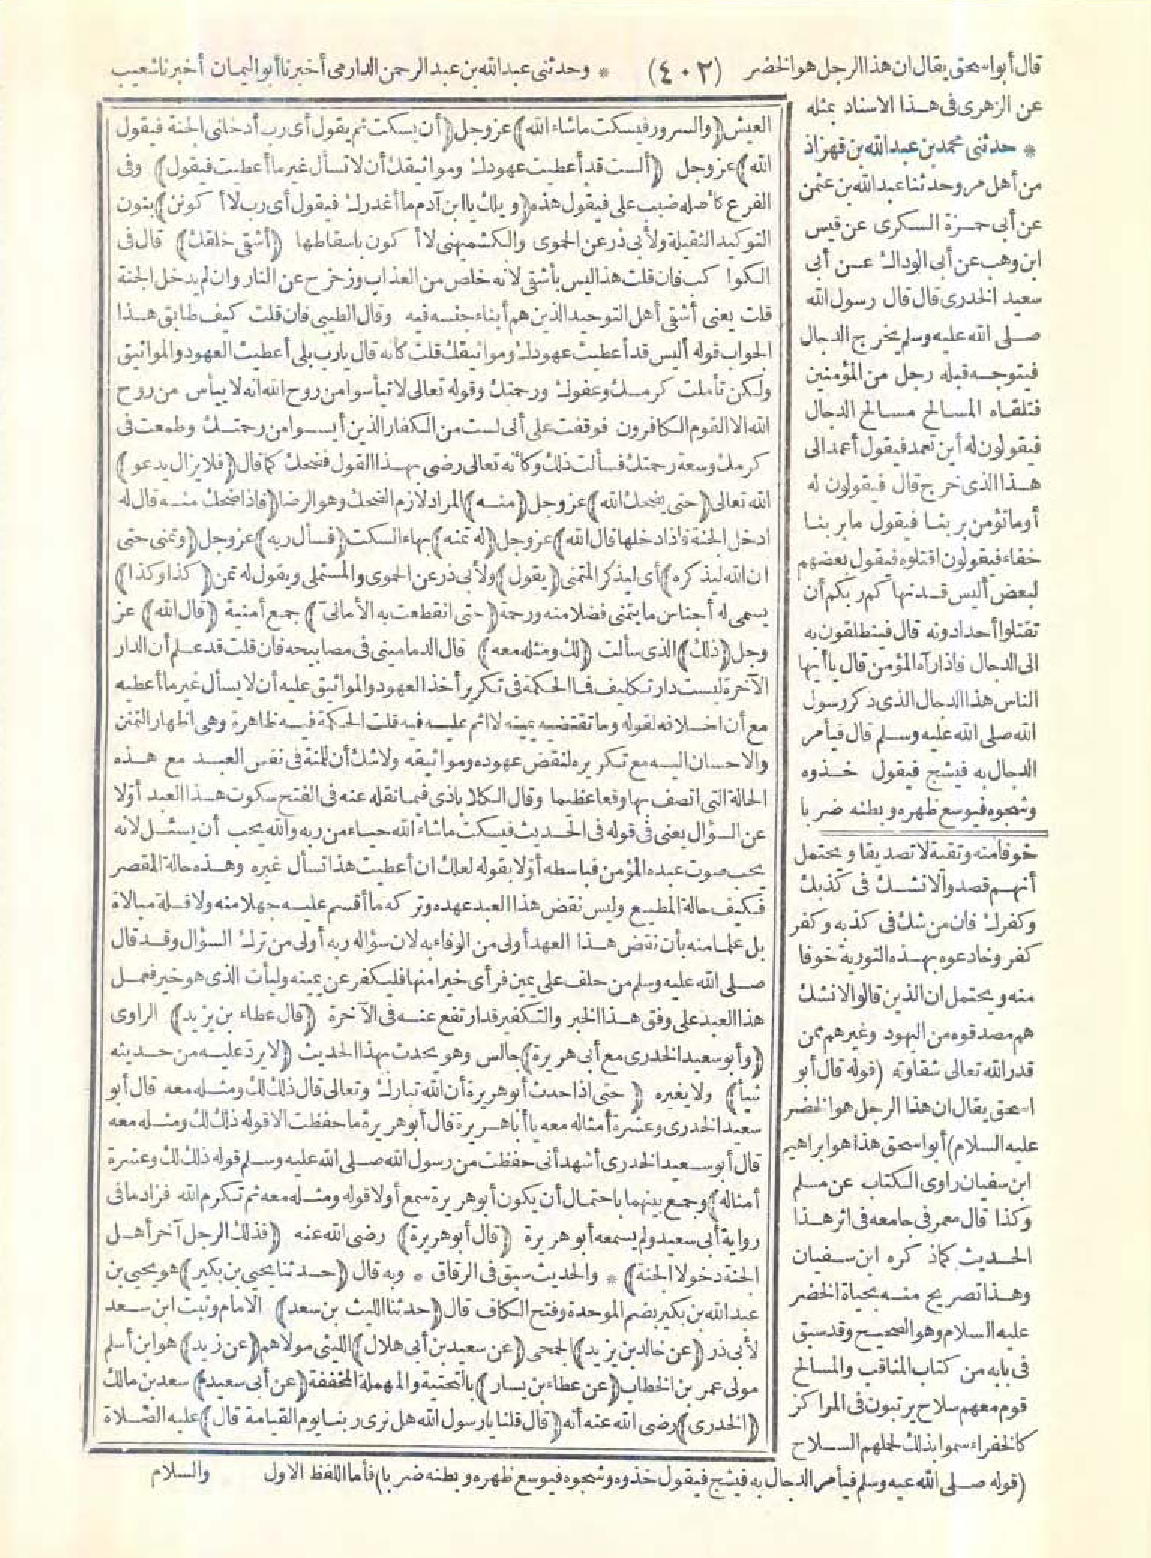 قال أبواسحق يقال ان هذا الرجل هو الخضر (٤٠٢) * وحدثنى عبد الله بن عبد الرحمن الدارمى أخبرنا أبو اليمان أخبرنا شعيب
عن الزهرى فى هذا الاسناد بمثله
* حدثنى محمد بن عبد الله بن قهزاذ
من أهل مرو حدثنا عبد الله بن عثمن
عن أبى حمزة السكرى عن قيس
ابن وهب عن أبى الوداك عن أبى
سعيد الخدرى قال قال رسول الله
صلى الله عليه وسلم يخرج الدجال
فيتوجه قبله رجل من المؤمنين
فتلقاه المسالح مسالح الدجال
فيقولون له أين تعمد فيقول أعمد الى
هذا الذى خرج قال فيقولون له
أوما تؤمن بربنا فيقول ما بربنا
خفاء فيقولون اقتلوه فيقول بعضهم
لبعض أليس قد نهاكم ربكم أن
تقتلوا أحدا دونه قال فينطلقون به
الى الدجال فاذا رآه المؤمن قال يا أيها
الناس هذا الدجال الذى ذكر رسول
الله صلى الله عليه وسلم قال فيأمر
الدجال به فيشج فيقول خذوه
وشجوه فيوسع ظهره وبطنه ضربا
خوفا منه وتقية لا تصديقا ويحتمل
أنهم قصدوا لا نشك فى كذبك
وكفرك فان من شك فى كذبه وكفر
كفر وخادعوه بهذه التورية خوفا
منه ويحتمل ان الذين قالوا لا نشك
هم مصدقوه من اليهود وغيرهم ممن
قدر الله تعالى شقاوته (قوله قال أبو
اسحق يقال ان هذا الرجل هو الخضر
عليه السلام) أبو اسحق هذا هو ابراهيم
ابن سفيان راوى الكتاب عن مسلم
وكذا قال معمر فى جامعه فى اثر هذا
الحديث كما ذكره ابن سفيان
وهذا تصريح منه بحياة الخضر
عليه السلام وهو الصحيح وقد سبق
فى بابه من كتاب المناقب والمسالح
قوم معهم سلاح يرتبون فى المراكز
كالخفراء سموا بذلك لحملهم السلاح
العيش (والسرور فيسكت ماشاء الله) عز وجل (أن يسكت ثم يقول أى رب أدخلنى الجنة فيقول
الله) عز وجل (ألست قد أعطيت عهودك ومواثيقك أن لا تسأل غير ما أعطيت فيقول) وفى
الفرع كأصله ضبب على فيقول هذه (ويلك يا ابن آدم ما أغدرك فيقول أى رب لا أكونن) بنون
التوكيد الثقيلة ولأبى ذر عن الحموى والكشميهنى لا أكون باسقاطها (أشقى خلقك) قال فى
الكواكب فان قلت هذا ليس بأشقى لانه خلص من العذاب وزحزح عن النار وان لم يدخل الجنة
قلت يعنى أشقى أهل التوحيد الذين هم أبناء جنسه فيه وقال الطيبى فان قلت كيف طابق هذا
الجواب قوله أليس قد أعطيت عهودك ومواثيقك قلت كأنه قال يارب بلى أعطيت العهود والمواثيق
ولكن تأملت كرمك وعفوك ورحمتك وقوله تعالى لا تيأسوا من روح الله انه لا ييأس من روح
الله الا القوم الكافرون فوقفت على أنى لست من الكفار الذين أيسوا من رحمتك وطمعت فى
كرمك وسعة رحمتك فسألت ذلك وكأنه تعالى رضى بهذا القول فضحك كما قال (فلا يزال يدعو)
الله تعالى (حتى يضحك الله) عز وجل (منه) المراد لازم الضحك وهو الرضا (فاذا ضحك منه قال له
ادخل الجنة فاذا دخلها قال الله) عز وجل (له تمنه) بهاء السكت (فسأل ربه) عز وجل (وتمنى حتى
ان الله ليذكره) أى ليذكر المتمنى (يقول) ولأبى ذر عن الحموى والمستملى ويقول له تمن (كذا وكذا)
يسمى له أجناس ما يتمنى فضلا منه ورحمة (حتى انقطعت به الأمانى) جمع أمنية (قال الله) عز
وجل (ذلك) الذى سألت (لك ومثله معه) قال الدمامينى فى مصابيحه فان قلت قد علم أن الدار
الآخرة ليست دار تكليف فما الحكمة فى تكرير أخذ العهود والمواثيق عليه أن لا يسأل غير ما أعطيه
مع أن اخلافه لقوله وما تقتضيه يمينه لا اثم عليه فيه قلت الحكمة فيه ظاهرة وهى اظهار التمنن
والاحسان اليه مع تكريره لنقض عهوده ومواثيقه ولا شك أن للمنة فى نفس العبد مع هذه
الحالة التى اتصف بها وقعا عظيما وقال الكلاباذى فيما نقله عنه فى الفتح سكوت هذا العبد أولا
عن السؤال يعنى فى قوله فى الحديث فيسكت ماشاء الله حياء من ربه والله يحب أن يسئل لانه
يحب صوت عبده المؤمن فباسطه أولا بقوله لعلك ان أعطيت هذا تسأل غيره وهذه حالة المقصر
فكيف حالة المطيع وليس نقض هذا العبد عهده وتركه ما أقسم عليه جهلا منه ولا قلة مبالاة
بل علما منه بأن نقض هذا العهد أولى من الوفاء به لان سؤاله ربه أولى من ترك السؤال وقد قال
صلى الله عليه وسلم من حلف على يمين فرأى خيرا منها فليكفر عن يمينه وليأت الذى هو خير فعمل
هذا العبد على وفق هذا الخبر والتكفير قد ارتفع عنه فى الآخرة (قال عطاء بن يزيد) الراوى
(وأبو سعيد الخدرى مع أبى هريرة) جالس وهو يحدث بهذا الحديث (لا يرد عليه من حديثه
شيأ) ولا يغيره (حتى اذا حدث أبو هريرة أن الله تبارك وتعالى قال ذلك لك ومثله معه قال أبو
سعيد الخدرى وعشرة أمثاله معه يا أبا هريرة قال أبو هريرة ما حفظت الا قوله ذلك لك ومثله معه
قال أبو سعيد الخدرى أشهد أنى حفظت من رسول الله صلى الله عليه وسلم قوله ذلك لك وعشرة
أمثاله) وجمع بينهما باحتمال أن يكون أبو هريرة سمع أولا قوله ومثله معه ثم تكرم الله فزاد ما فى
رواية أبى سعيد ولم يسمعه أبو هريرة (قال أبو هريرة) رضى الله عنه (فذلك الرجل آخر أهل
الجنة دخولا الجنة) * والحديث سبق فى الرقاق * وبه قال (حدثنا يحيى بن بكير) هو يحيى بن
عبد الله بن بكير بضم الموحدة وفتح الكاف قال (حدثنا الليث بن سعد) الامام وثبت ابن سعد
لأبى ذر (عن خالد بن يزيد) الجمحى (عن سعيد بن أبى هلال) الليثى مولاهم (عن زيد) هو ابن أسلم
مولى عمر بن الخطاب (عن عطاء بن يسار) بالتحتية والمهملة المخففة (عن أبى سعيد) سعد بن مالك
(الخدرى) رضى الله عنه أنه (قال قلنا يا رسول الله هل نرى ربنا يوم القيامة قال) عليه الصلاة
(قوله صلى الله عيه وسلم فيأمر الدجال به فيشج فيقول خذوه وشجوه فيوسع ظهره وبطنه ضربا) فأما اللفظ الاول والسلام